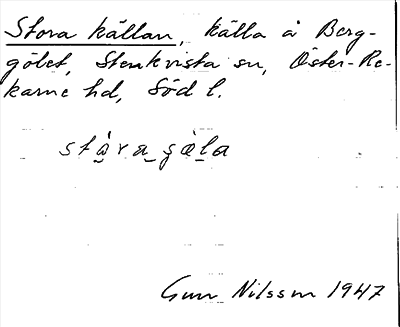 Stora källan, källa å Berg-
gölet, Stenkvista sn, Öster-Re-
karne hd, Söd l.
stòra gæla
Gun Nilsson 1947